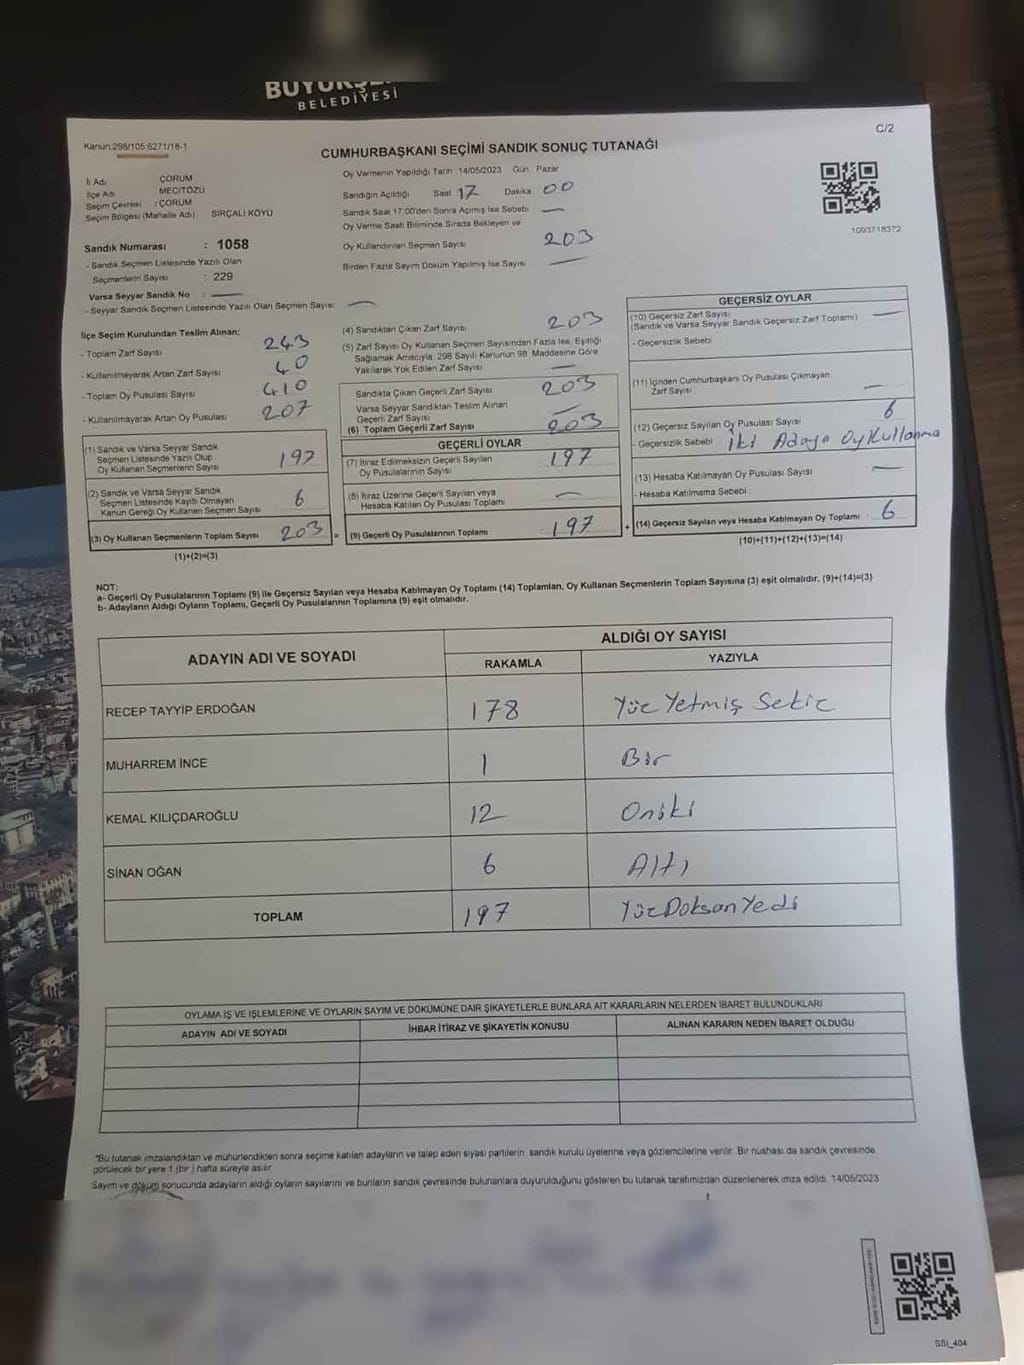 BÜYÜKŞE
BELEDİYESİ
C/2
Kanun:298/105,6271/18-1
CUMHURBAŞKANI SEÇİMİ SANDIK SONUÇ TUTANAĞI
İl Adı ÇORUM
İlçe Adı MECİTÖZÜ
Seçim Çevresi : ÇORUM
Seçim Bölgesi (Mahalle Adı) SIRÇALI KÖYÜ
Sandık Numarası : 1058
- Sandık Seçmen Listesinde Yazılı Olan
Seçmenlerin Sayısı : 229
Varsa Seyyar Sandık No : —
- Seyyar Sandık Seçmen Listesinde Yazılı Olan Seçmen Sayısı —
Oy Vermenin Yapıldığı Tarih 14/05/2023 Gün Pazar
Sandığın Açıldığı Saat 17 Dakika 00
Sandık Saat 17.00'den Sonra Açımış İse Sebebi —
Oy Verme Saati Bitiminde Sırada Bekleyen ve
Oy Kullandırılan Seçmen Sayısı 203
Birden Fazla Sayım Döküm Yapılmış İse Sayısı —
1093718372
İlçe Seçim Kurulundan Teslim Alınan;
- Toplam Zarf Sayısı 243
- Kullanılmayarak Artan Zarf Sayısı 40
- Toplam Oy Pusulası Sayısı 410
- Kullanılmayarak Artan Oy Pusulası 207
(1) Sandık ve Varsa Seyyar Sandık
Seçmen Listesinde Yazılı Olup
Oy Kullanan Seçmenlerin Sayısı 197
(2) Sandık ve Varsa Seyyar Sandık
Seçmen Listesinde Kayıtlı Olmayan
Kanun Gereği Oy Kullanan Seçmen Sayısı 6
(3) Oy Kullanan Seçmenlerin Toplam Sayısı 203 =
(1)+(2)=(3)
(4) Sandıktan Çıkan Zarf Sayısı 203
(5) Zarf Sayısı Oy Kullanan Seçmen Sayısından Fazla İse, Eşitliği
Sağlamak Amacıyla, 298 Sayılı Kanunun 98. Maddesine Göre
Yakılarak Yok Edilen Zarf Sayısı —
Sandıkta Çıkan Geçerli Zarf Sayısı 203
Varsa Seyyar Sandıktan Teslim Alınan
Geçerli Zarf Sayısı —
(6) Toplam Geçerli Zarf Sayısı 203
GEÇERLİ OYLAR
(7) İtiraz Edilmeksizin Geçerli Sayılan
Oy Pusulalarının Sayısı 197
(8) İtiraz Üzerine Geçerli Sayılan veya
Hesaba Katılan Oy Pusulası Toplamı —
(9) Geçerli Oy Pusulalarının Toplamı 197 +
GEÇERSİZ OYLAR
(10) Geçersiz Zarf Sayısı —
(Sandık ve Varsa Seyyar Sandık Geçersiz Zarf Toplamı)
- Geçersizlik Sebebi
(11) İçinden Cumhurbaşkanı Oy Pusulası Çıkmayan
Zarf Sayısı —
(12) Geçersiz Sayılan Oy Pusulası Sayısı 6
- Geçersizlik Sebebi İki Adaya Oy Kullanma
(13) Hesaba Katılmayan Oy Pusulası Sayısı —
- Hesaba Katılmama Sebebi
(14) Geçersiz Sayılan veya Hesaba Katılmayan Oy Toplamı : 6
(10)+(11)+(12)+(13)=(14)
NOT:
a- Geçerli Oy Pusulalarının Toplamı (9) ile Geçersiz Sayılan veya Hesaba Katılmayan Oy Toplamı (14) Toplamları, Oy Kullanan Seçmenlerin Toplam Sayısına (3) eşit olmalıdır. (9)+(14)=(3)
b- Adayların Aldığı Oyların Toplamı, Geçerli Oy Pusulalarının Toplamına (9) eşit olmalıdır.
ADAYIN ADI VE SOYADI ALDIĞI OY SAYISI
RAKAMLA YAZIYLA
RECEP TAYYİP ERDOĞAN 178 Yüz Yetmiş Sekiz
MUHARREM İNCE 1 Bir
KEMAL KILIÇDAROĞLU 12 Oniki
SİNAN OĞAN 6 Altı
TOPLAM 197 Yüz Doksan Yedi
OYLAMA İŞ VE İŞLEMLERİNE VE OYLARIN SAYIM VE DÖKÜMÜNE DAİR ŞİKAYETLERLE BUNLARA AİT KARARLARIN NELERDEN İBARET BULUNDUKLARI
ADAYIN ADI VE SOYADI İHBAR İTİRAZ VE ŞİKAYETİN KONUSU ALINAN KARARIN NEDEN İBARET OLDUĞU
*Bu tutanak imzalandıktan ve mühürlendikten sonra seçime katılan adayların ve talep eden siyasi partilerin sandık kurulu üyelerine veya gözlemcilerine verilir. Bir nüshası da sandık çevresinde
görülecek bir yere 1 (bir) hafta süreyle asılır.
Sayım ve döküm sonucunda adayların aldığı oyların sayılarını ve bunların sandık çevresinde bulunanlara duyurulduğunu gösteren bu tutanak tarafımızdan düzenlenerek imza edildi. 14/05/2023
GSI_404